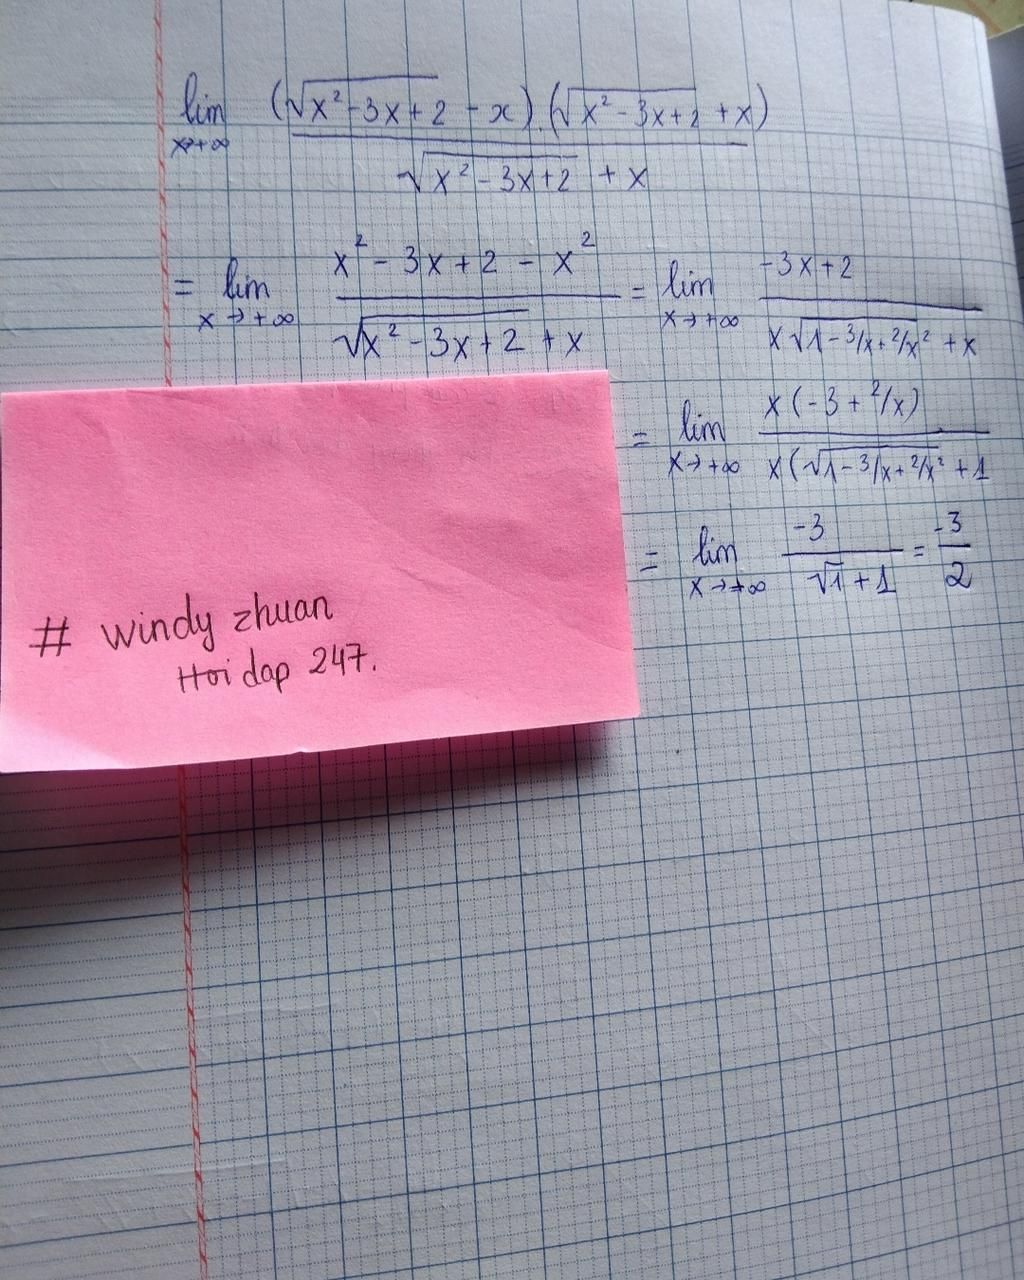 lim x→+∞ (√(x² - 3x + 2) - x).(√(x² - 3x + 2) + x) / (√(x² - 3x + 2) + x)
= lim x→+∞ (x² - 3x + 2 - x²) / (√(x² - 3x + 2) + x) = lim x→+∞ (-3x + 2) / (x√(1 - 3/x + 2/x²) + x)
= lim x→+∞ x(-3 + 2/x) / x(√(1 - 3/x + 2/x²) + 1
= lim x→+∞ -3 / (√1 + 1) = -3/2
# windy zhuan
Hoi dap 247.